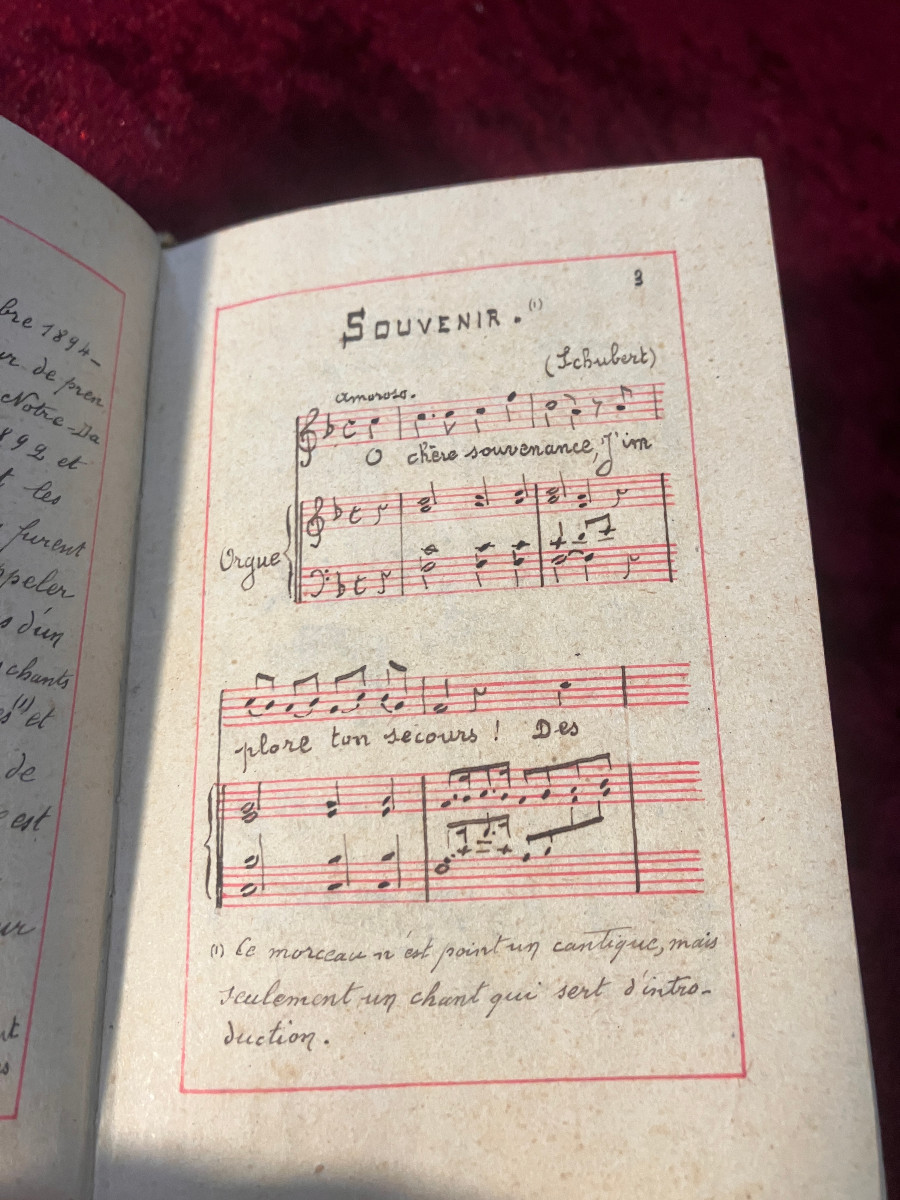 bre 1894-
ur de pren
Notre-Da
892 et
les
furent
ppeler
s d'un
chants
es(1) et
de
est
ur
3
SOUVENIR. (1)
(Schubert)
amoroso.
O chère souvenance, J'im
Orgue
plore ton secours ! Des
(1) Ce morceau n'est point un cantique, mais
seulement un chant qui sert d'intro-
duction.